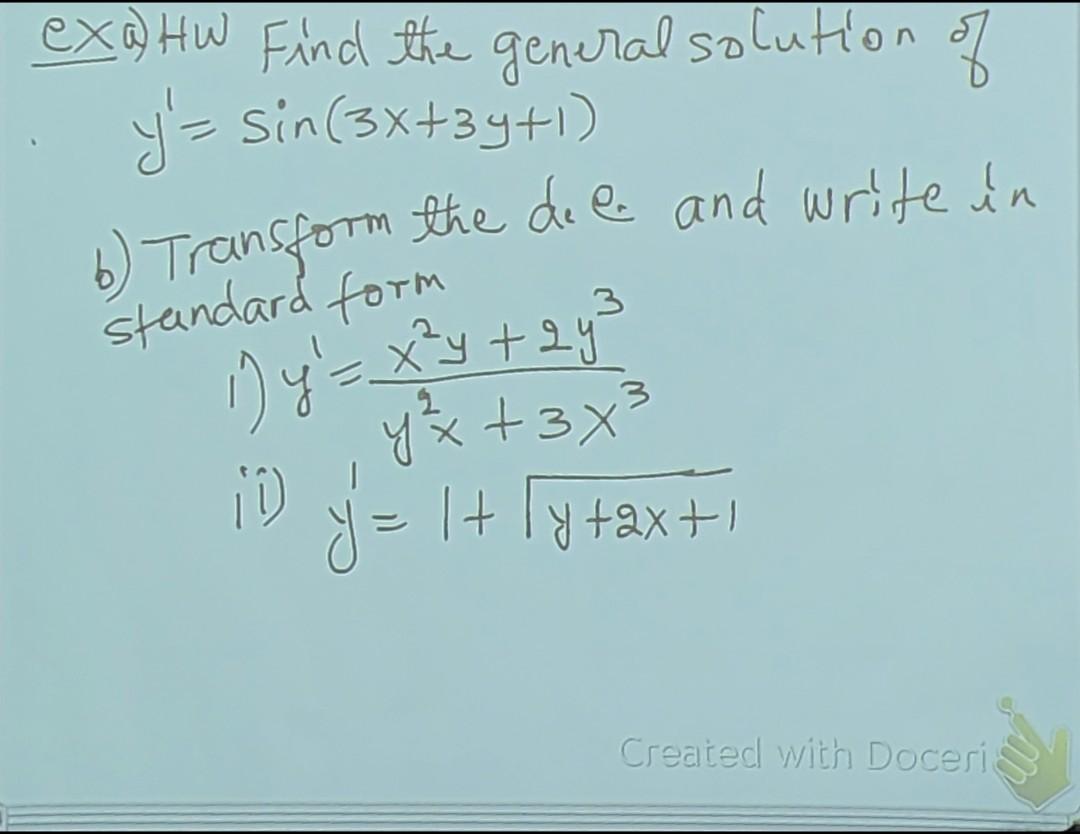 ex a) HW Find the general solution of
y' = sin(3x+3y+1)
b) Transform the d.e. and write in
standard form
i) y' = (x²y + 2y³)/(y²x + 3x³)
ii) y' = 1 + √(y+2x+1)
Created with Doceri